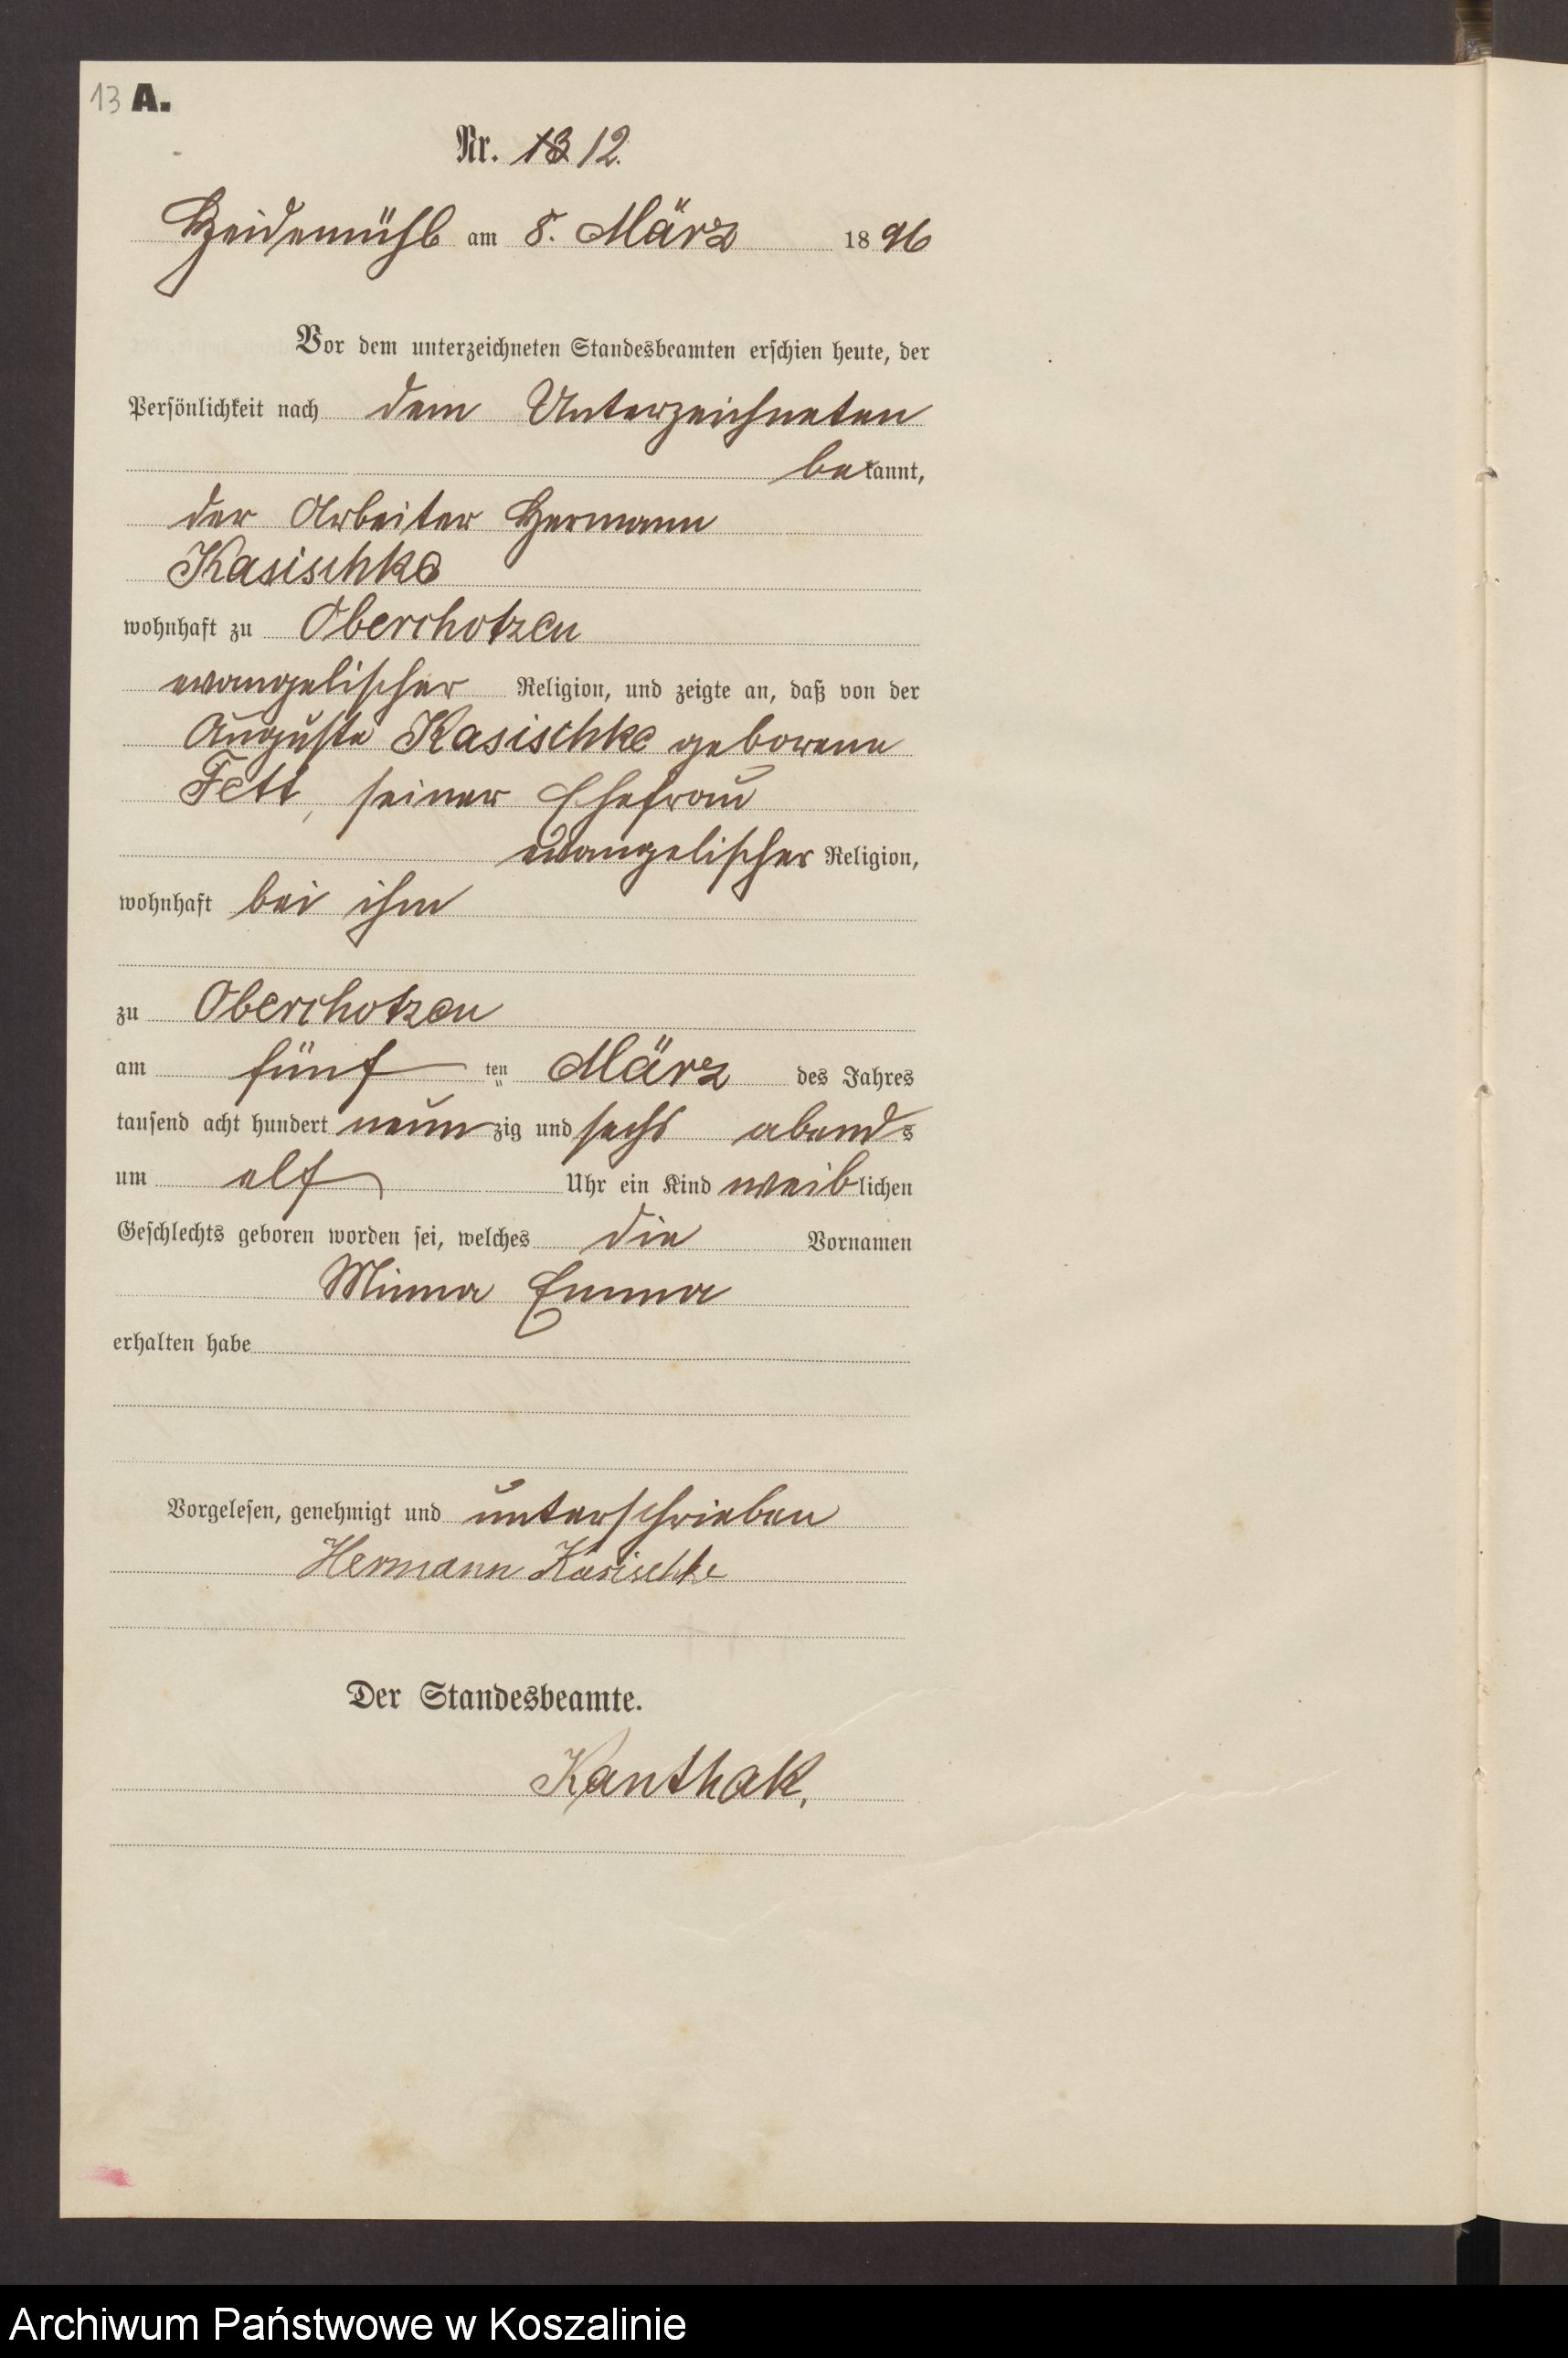 13 A.
Nr. 13 12.
Heidemühl am 8. März 1896
Vor dem unterzeichneten Standesbeamten erschien heute, der
Persönlichkeit nach dem Unterzeichneten
bekannt,
der Arbeiter Hermann
Kasischke
wohnhaft zu Oberchotzen
evangelischer Religion, und zeigte an, daß von der
Auguste Kasischke geborene
Fett, seiner Ehefrau
evangelischer Religion,
wohnhaft bei ihm
zu Oberchotzen
am fünf ten März des Jahres
tausend acht hundert neunzig und sechs abends
um elf Uhr ein Kind weiblichen
Geschlechts geboren worden sei, welches die Vornamen
Minna Emma
erhalten habe
Vorgelesen, genehmigt und unterschrieben
Hermann Kasischke
Der Standesbeamte.
Kanthak.
Archiwum Państwowe w Koszalinie